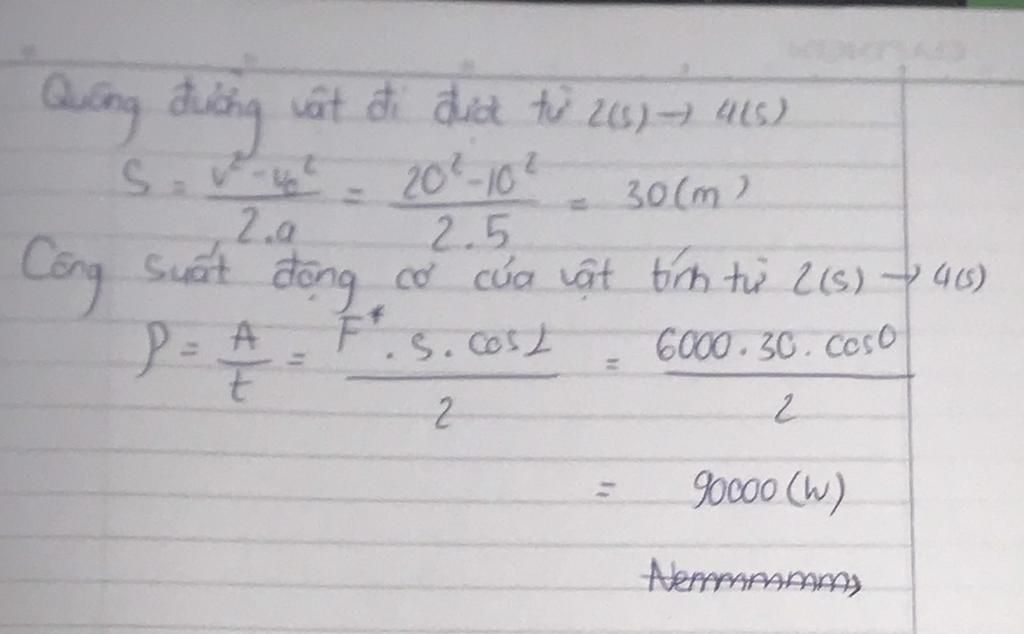 Quãng đường vật đi được từ 2(s) → 4(s)
S = v² - v₀² / 2.a = 20² - 10² / 2.5 = 30(m)
Công suất động cơ của vật tính từ 2(s) → 4(s)
P = A / t = F* . s . cos α / 2 = 6000 . 30 . cos 0 / 2
= 90000 (W)